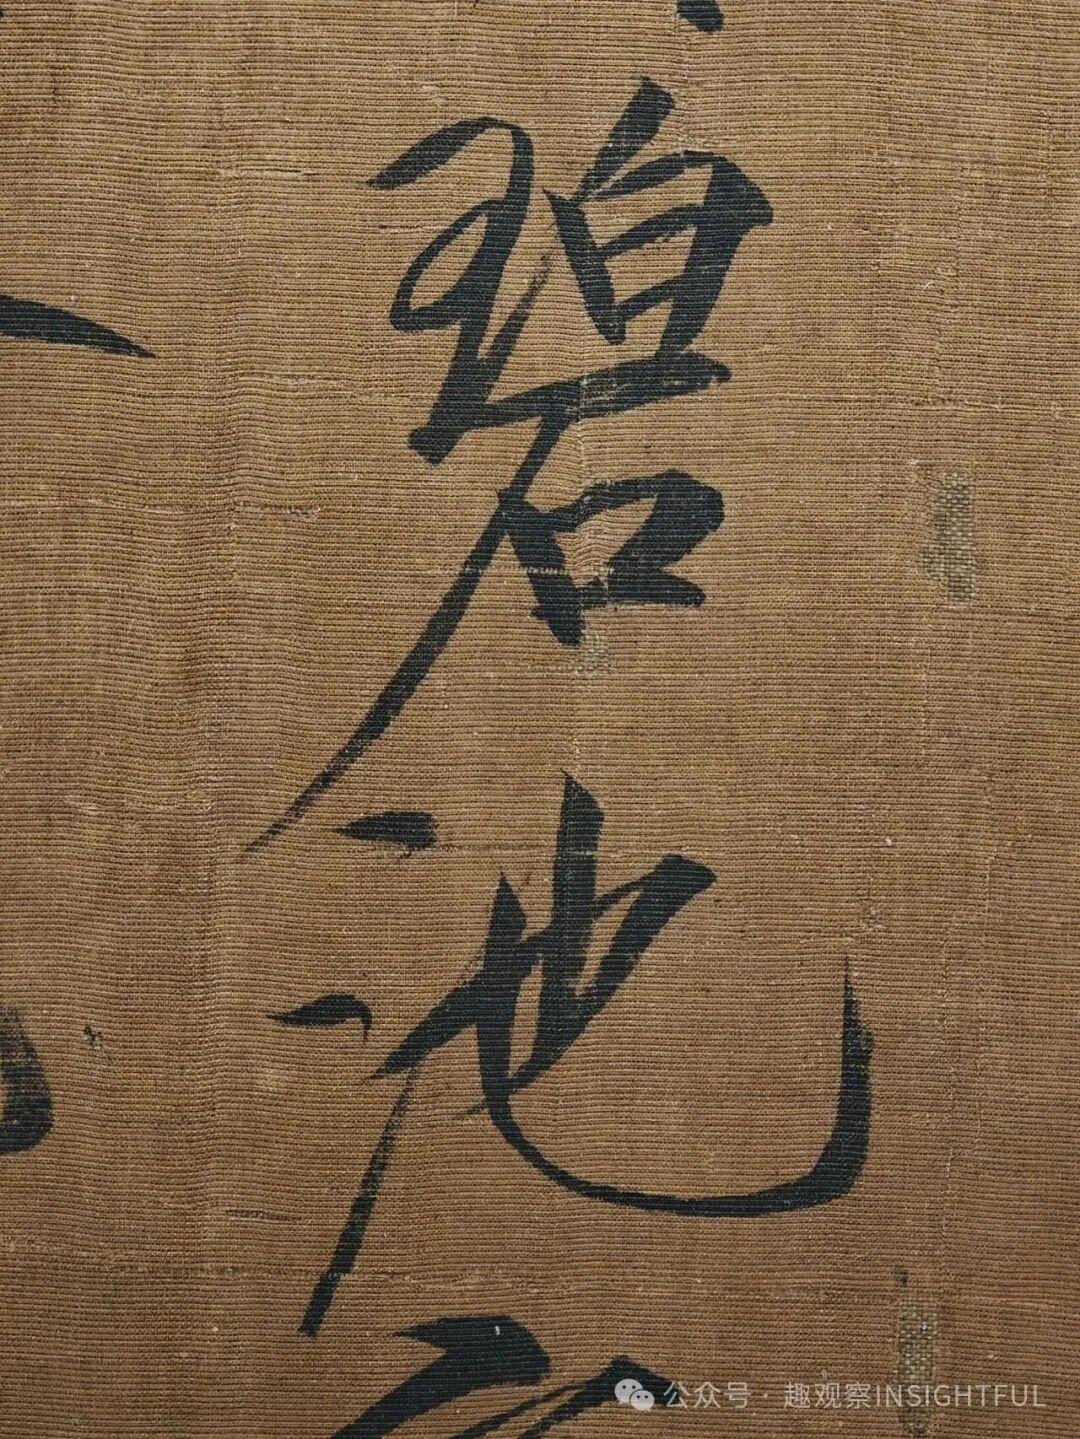 碧池
公众号 · 趣观察INSIGHTFUL